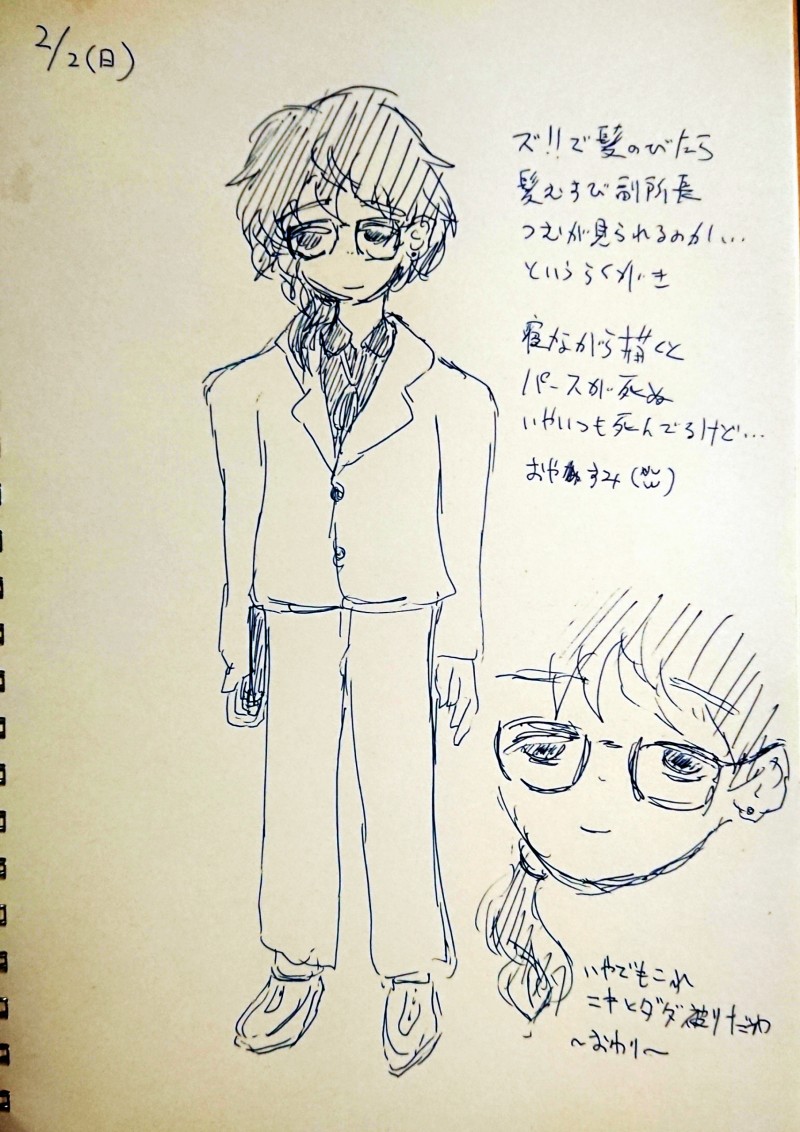 2/2(日)
ズ!!で髪のびたら
髪むすび副所長
つむが見られるのかし...
というらくがき
寝ながら描くと
パースが死ぬ
いやいつも死んでるけど...
おやすみ
いやでもこれ
ニキとダダ被りだわ
~おわり~